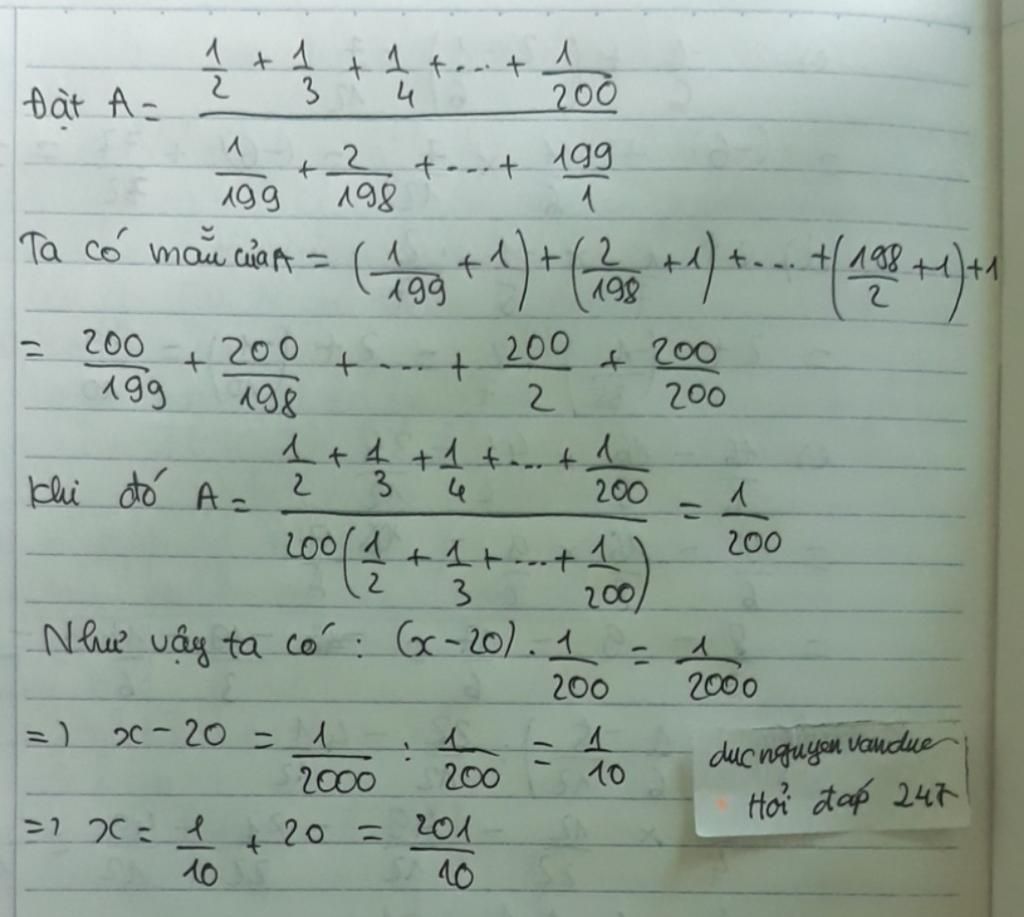 Đặt A = (1/2 + 1/3 + 1/4 + ... + 1/200) / (1/199 + 2/198 + ... + 199/1)
Ta có mẫu của A = (1/199 + 1) + (2/198 + 1) + .... + (198/2 + 1) + 1
= 200/199 + 200/198 + .... + 200/2 + 200/200
Khi đó A = (1/2 + 1/3 + 1/4 + ... + 1/200) / (200(1/2 + 1/3 + ... + 1/200)) = 1/200
Như vậy ta có : (x - 20) . 1/200 = 1/2000
=> x - 20 = 1/2000 : 1/200 = 1/10
=> x = 1/10 + 20 = 201/10
ducnguyenvanduc
Hỏi đáp 247